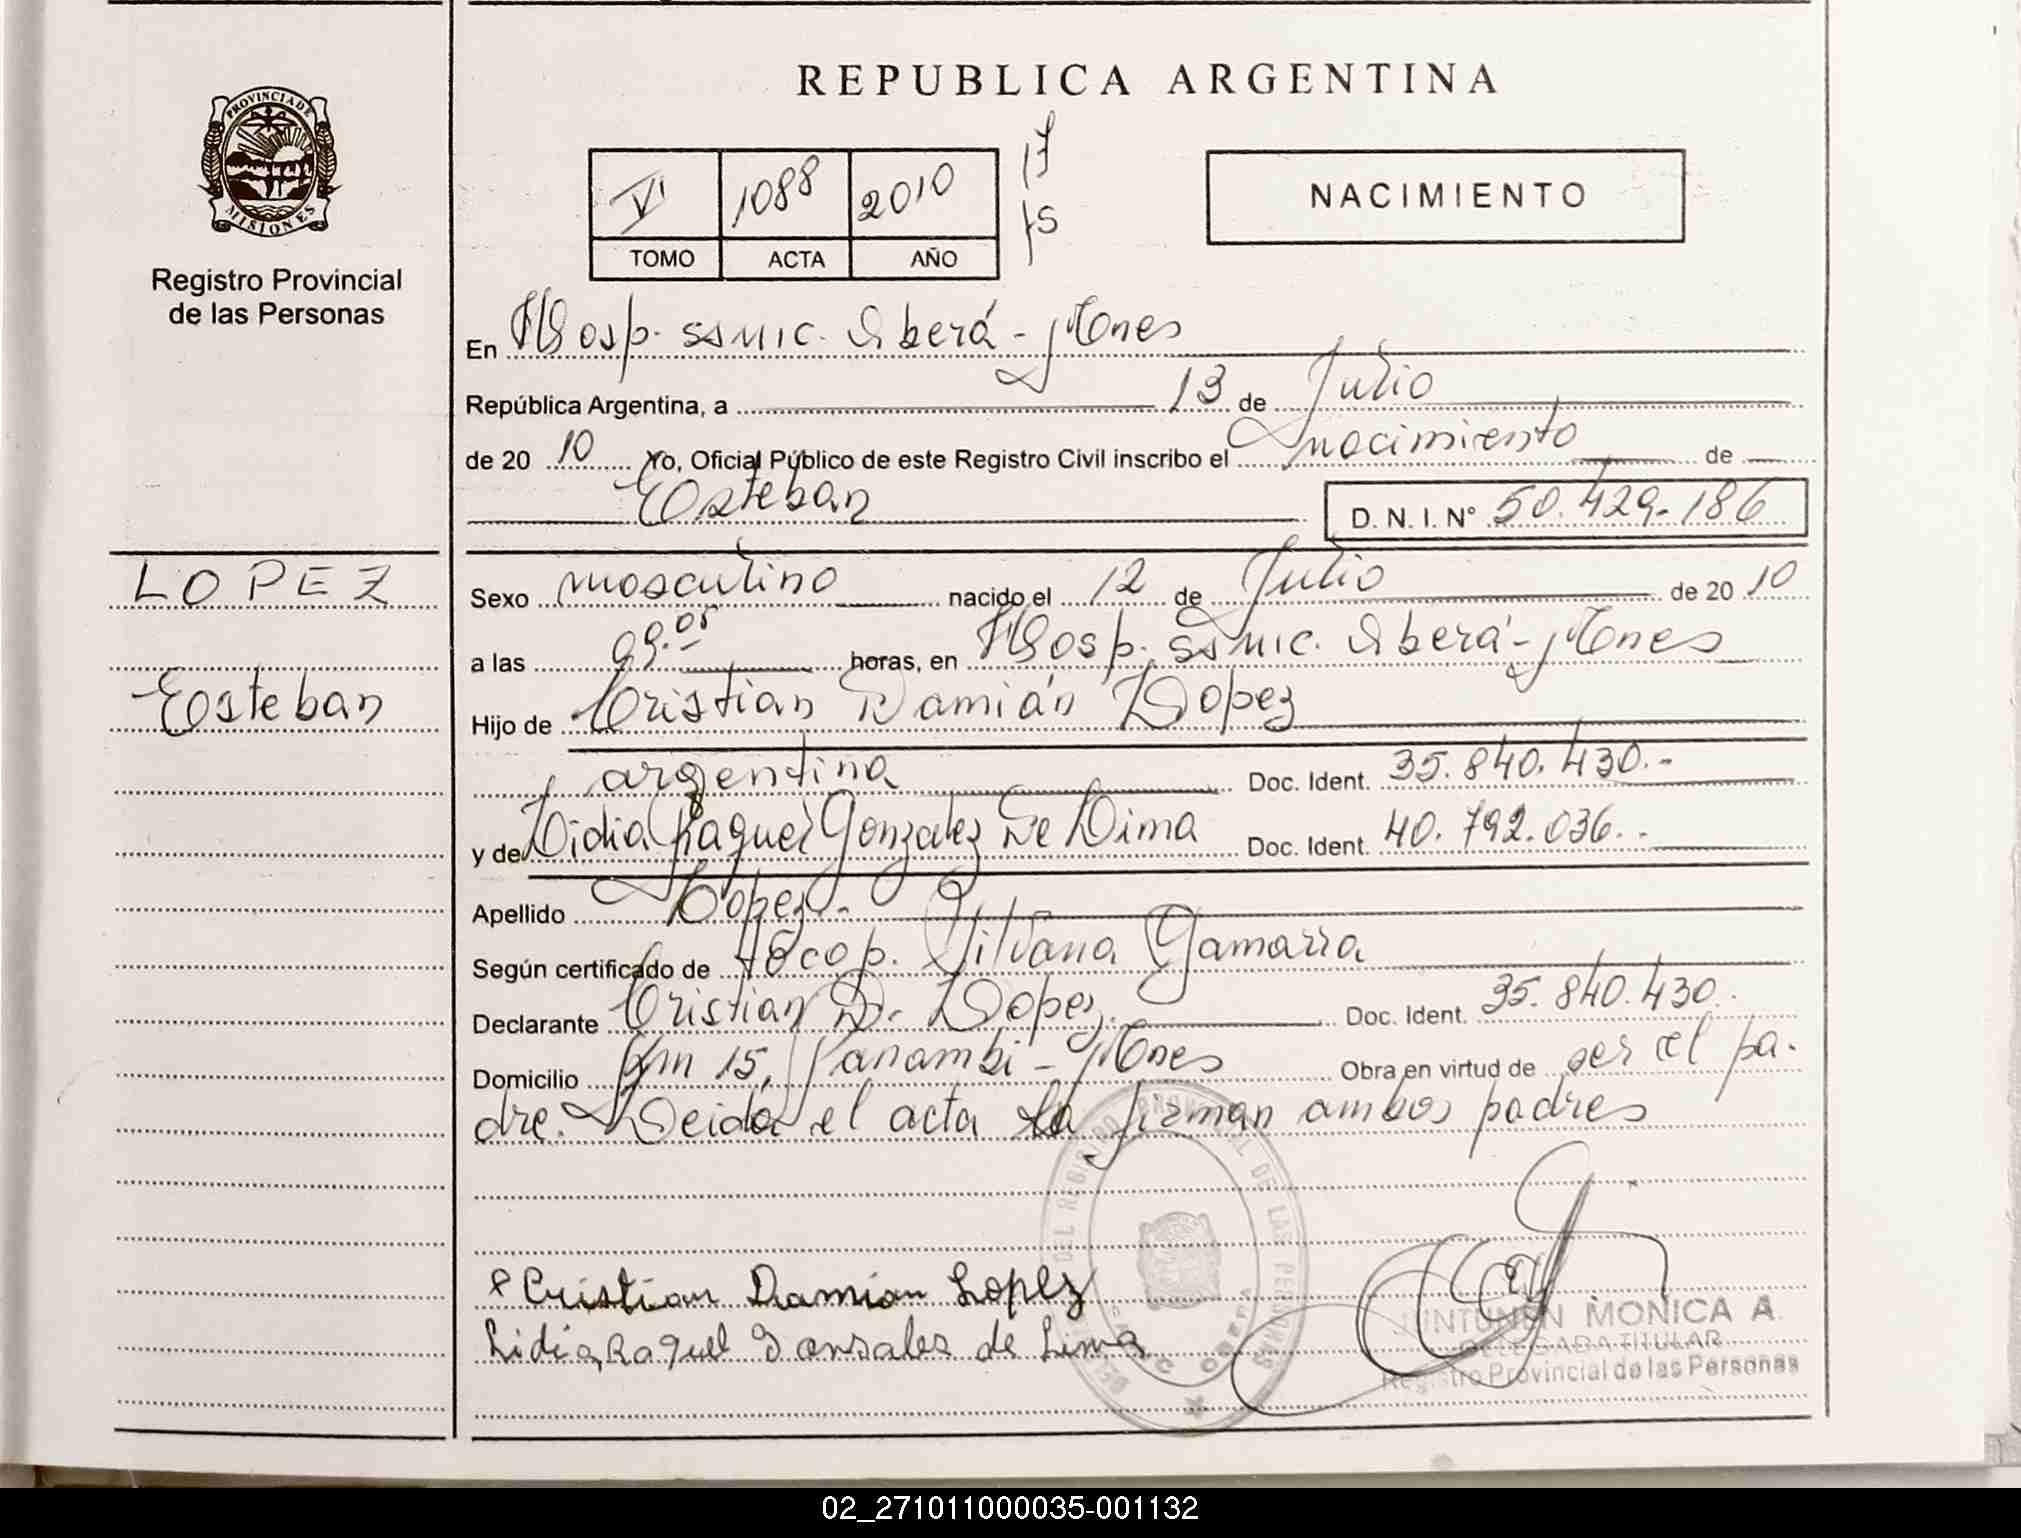 PROVINCIA DE
MISIONES
Registro Provincial
de las Personas
LOPEZ
Esteban
REPUBLICA ARGENTINA
VI 1088 2010
TOMO ACTA AÑO
NACIMIENTO
En Hosp. SSMIC. Oberá - Mnes
República Argentina, a 13 de Julio
de 20 10 Yo, Oficial Público de este Registro Civil inscribo el nacimiento de
Esteban D. N. I. N° 50.429.186
Sexo masculino nacido el 12 de Julio de 20 10
a las 09.05 horas, en Hosp. SSMIC. Oberá - Mnes
Hijo de Cristian Damián Lopez
argentina Doc. Ident. 35.840.430.-
y de Lidia Raquel Gonzalez De Lima Doc. Ident. 40.792.036.-
Apellido Lopez.-
Según certificado de Silvana Gamarra
Declarante Cristian D. Lopez. Doc. Ident. 35.840.430.
Domicilio Km 15, Panambi - Mnes Obra en virtud de ser el pa-
dre. Leida el acta la firman ambos padres
Cristian Damian Lopez
Lidia Raquel Gonsales de Lima
JUNTUNEN MONICA A.
DELEGADA TITULAR
Registro Provincial de las Personas
02_271011000035-001132